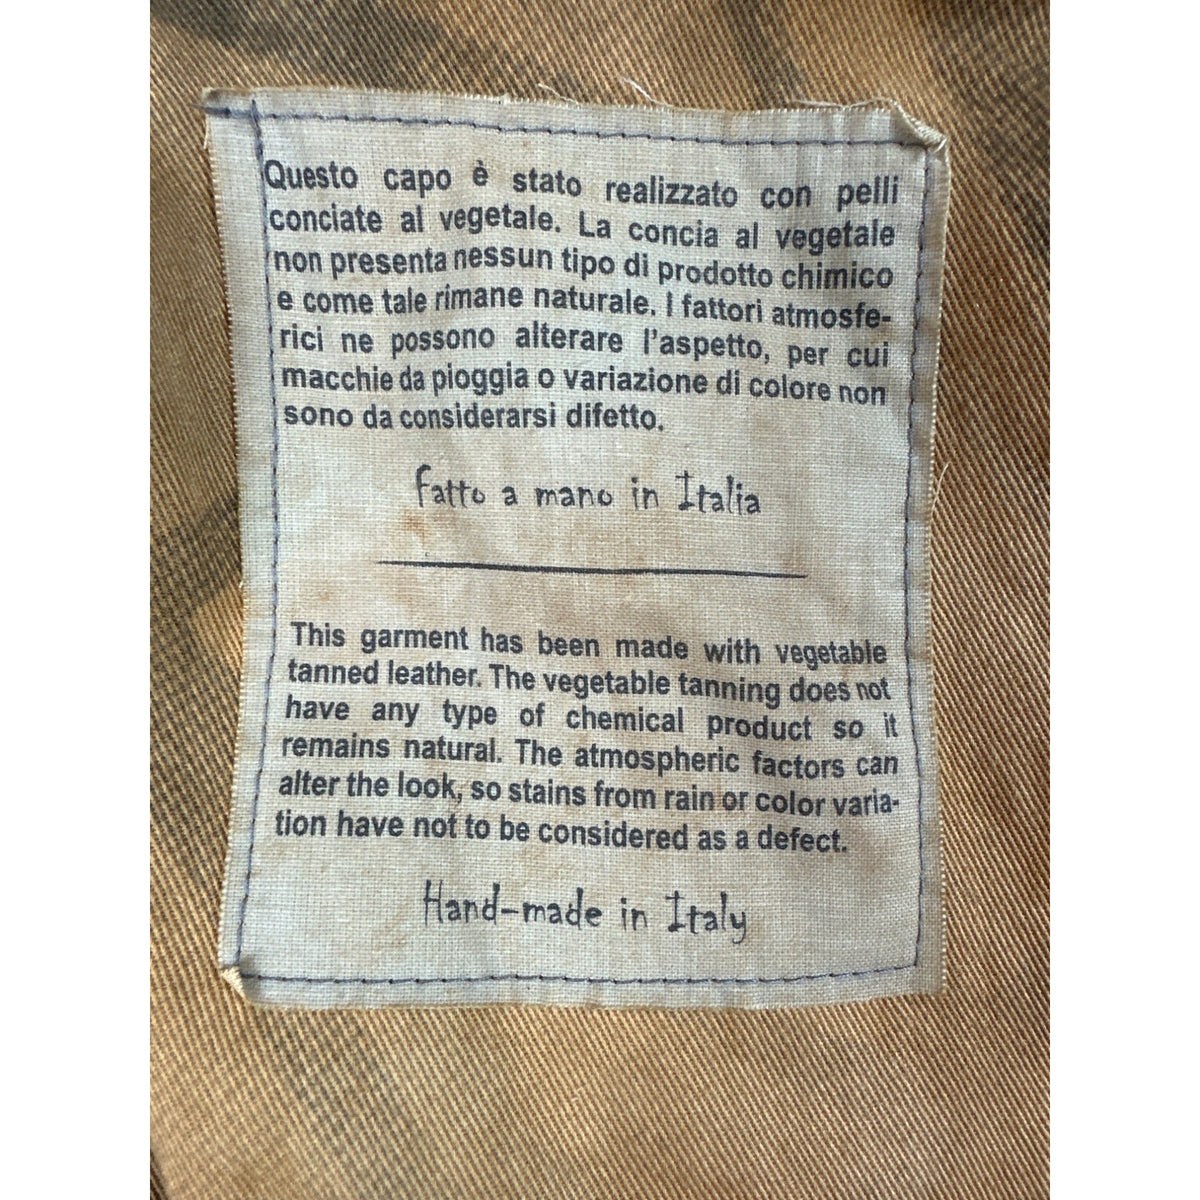 Questo capo è stato realizzato con pelli
conciate al vegetale. La concia al vegetale
non presenta nessun tipo di prodotto chimico
e come tale rimane naturale. I fattori atmosfe-
rici ne possono alterare l'aspetto, per cui
macchie da pioggia o variazione di colore non
sono da considerarsi difetto.
fatto a mano in Italia
This garment has been made with vegetable
tanned leather. The vegetable tanning does not
have any type of chemical product so it
remains natural. The atmospheric factors can
alter the look, so stains from rain or color varia-
tion have not to be considered as a defect.
Hand-made in Italy